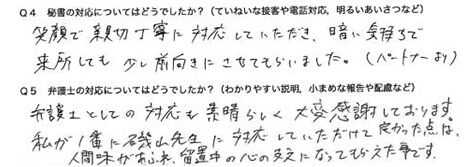 Q4 秘書の対応についてはどうでしたか？（ていねいな接客や電話対応，明るいあいさつなど）
笑顔で親切丁寧に対応していただき、暗い気持ちで
来所しても少し前向きにさせてもらいました。（パートナーより）
Q5 弁護士の対応についてはどうでしたか？（わかりやすい説明，小まめな報告や配慮など）
弁護士としての対応も素晴らしく大変感謝しております。
私が1番に磯山先生に対応していただけて良かった点は、
人間味があふれ、留置中の心の支えになってもらえた事です。